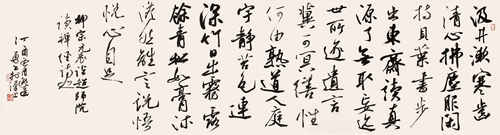 汲井漱寒齒
清心拂塵服閑
持貝葉書步
出東齋讀真
源了無取妄迹
世所逐遺言
冀可冥繕性
何由熟道人庭
宇静苔色連
深竹日出霧露
餘青松如膏沐
澹然離言説悟
悦心自足
柳宗元晨詣超師院
讀禪經
丁酉